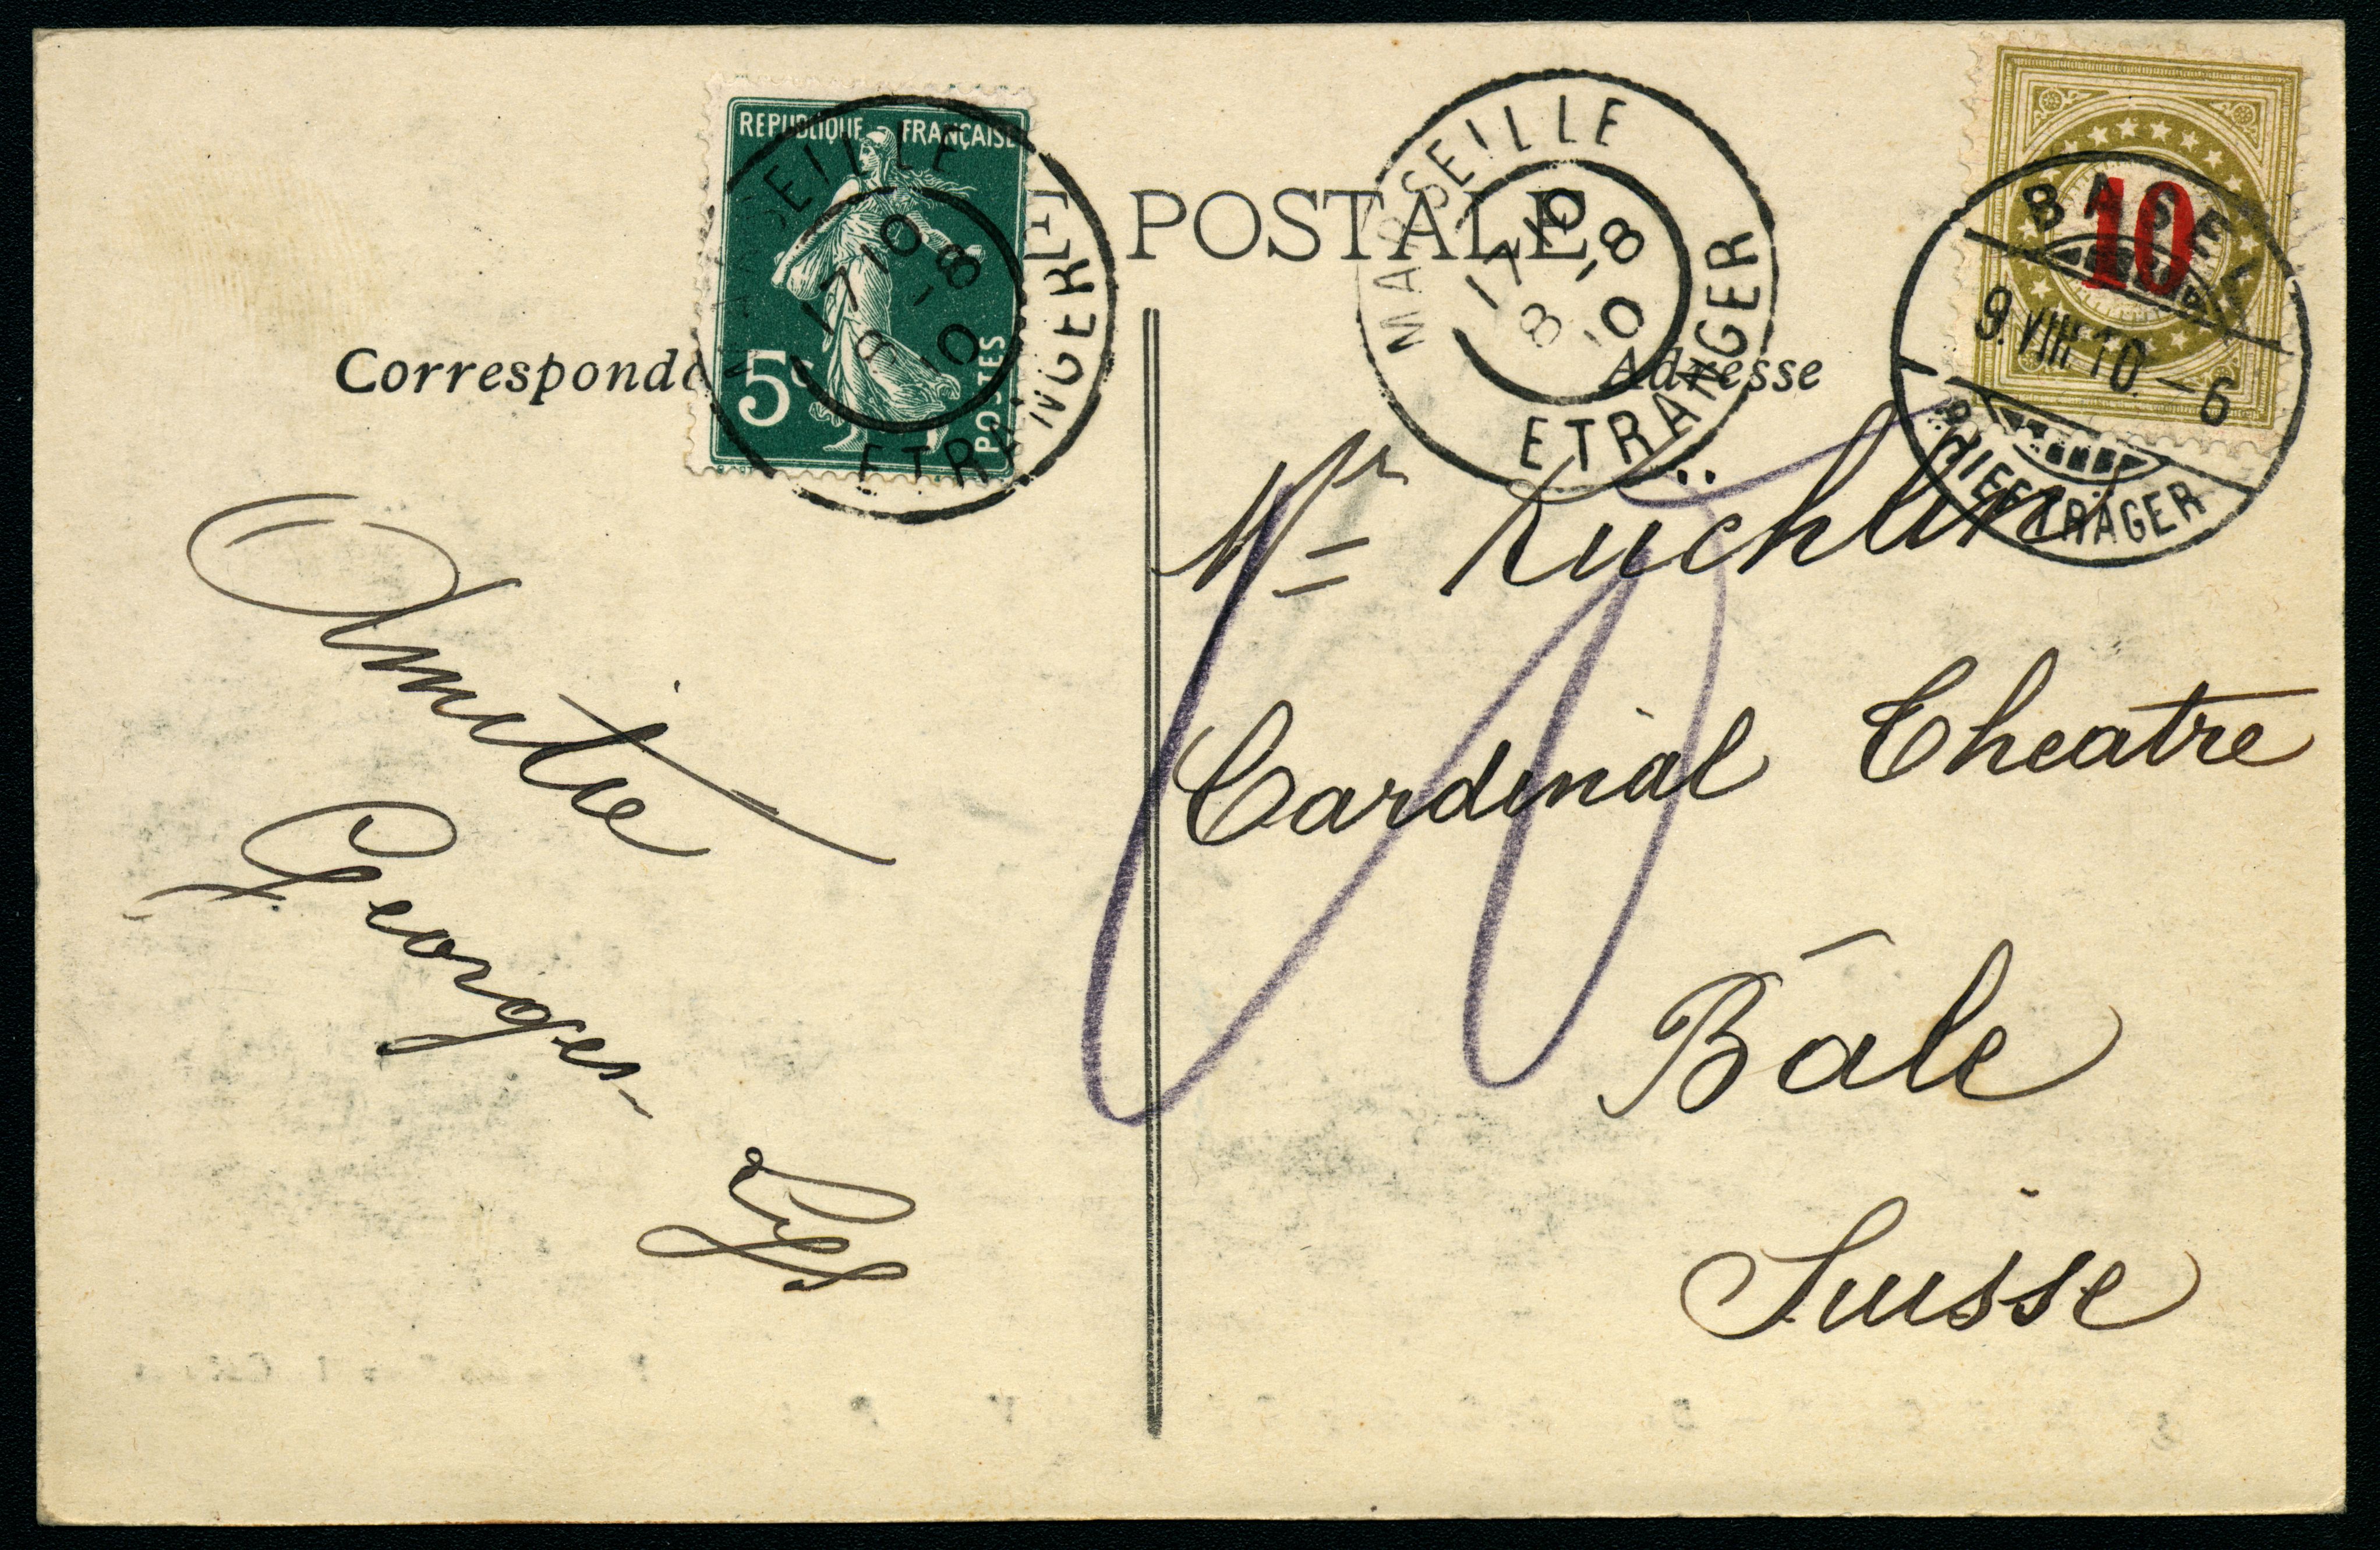 POSTALE
Correspond
Adresse
REPUBLIQUE FRANÇAISE
5c
POSTES
MARSEILLE
17 10
8 -8
10
ETRANGER
MARSEILLE
17 10
8 -8
10
ETRANGER
10
BASEL
9.VIII.10.-6
BRIEFTRÄGER
Mr Küchlin
Cardinal Theatre
Bâle
Suisse
10
Amitié
Georges